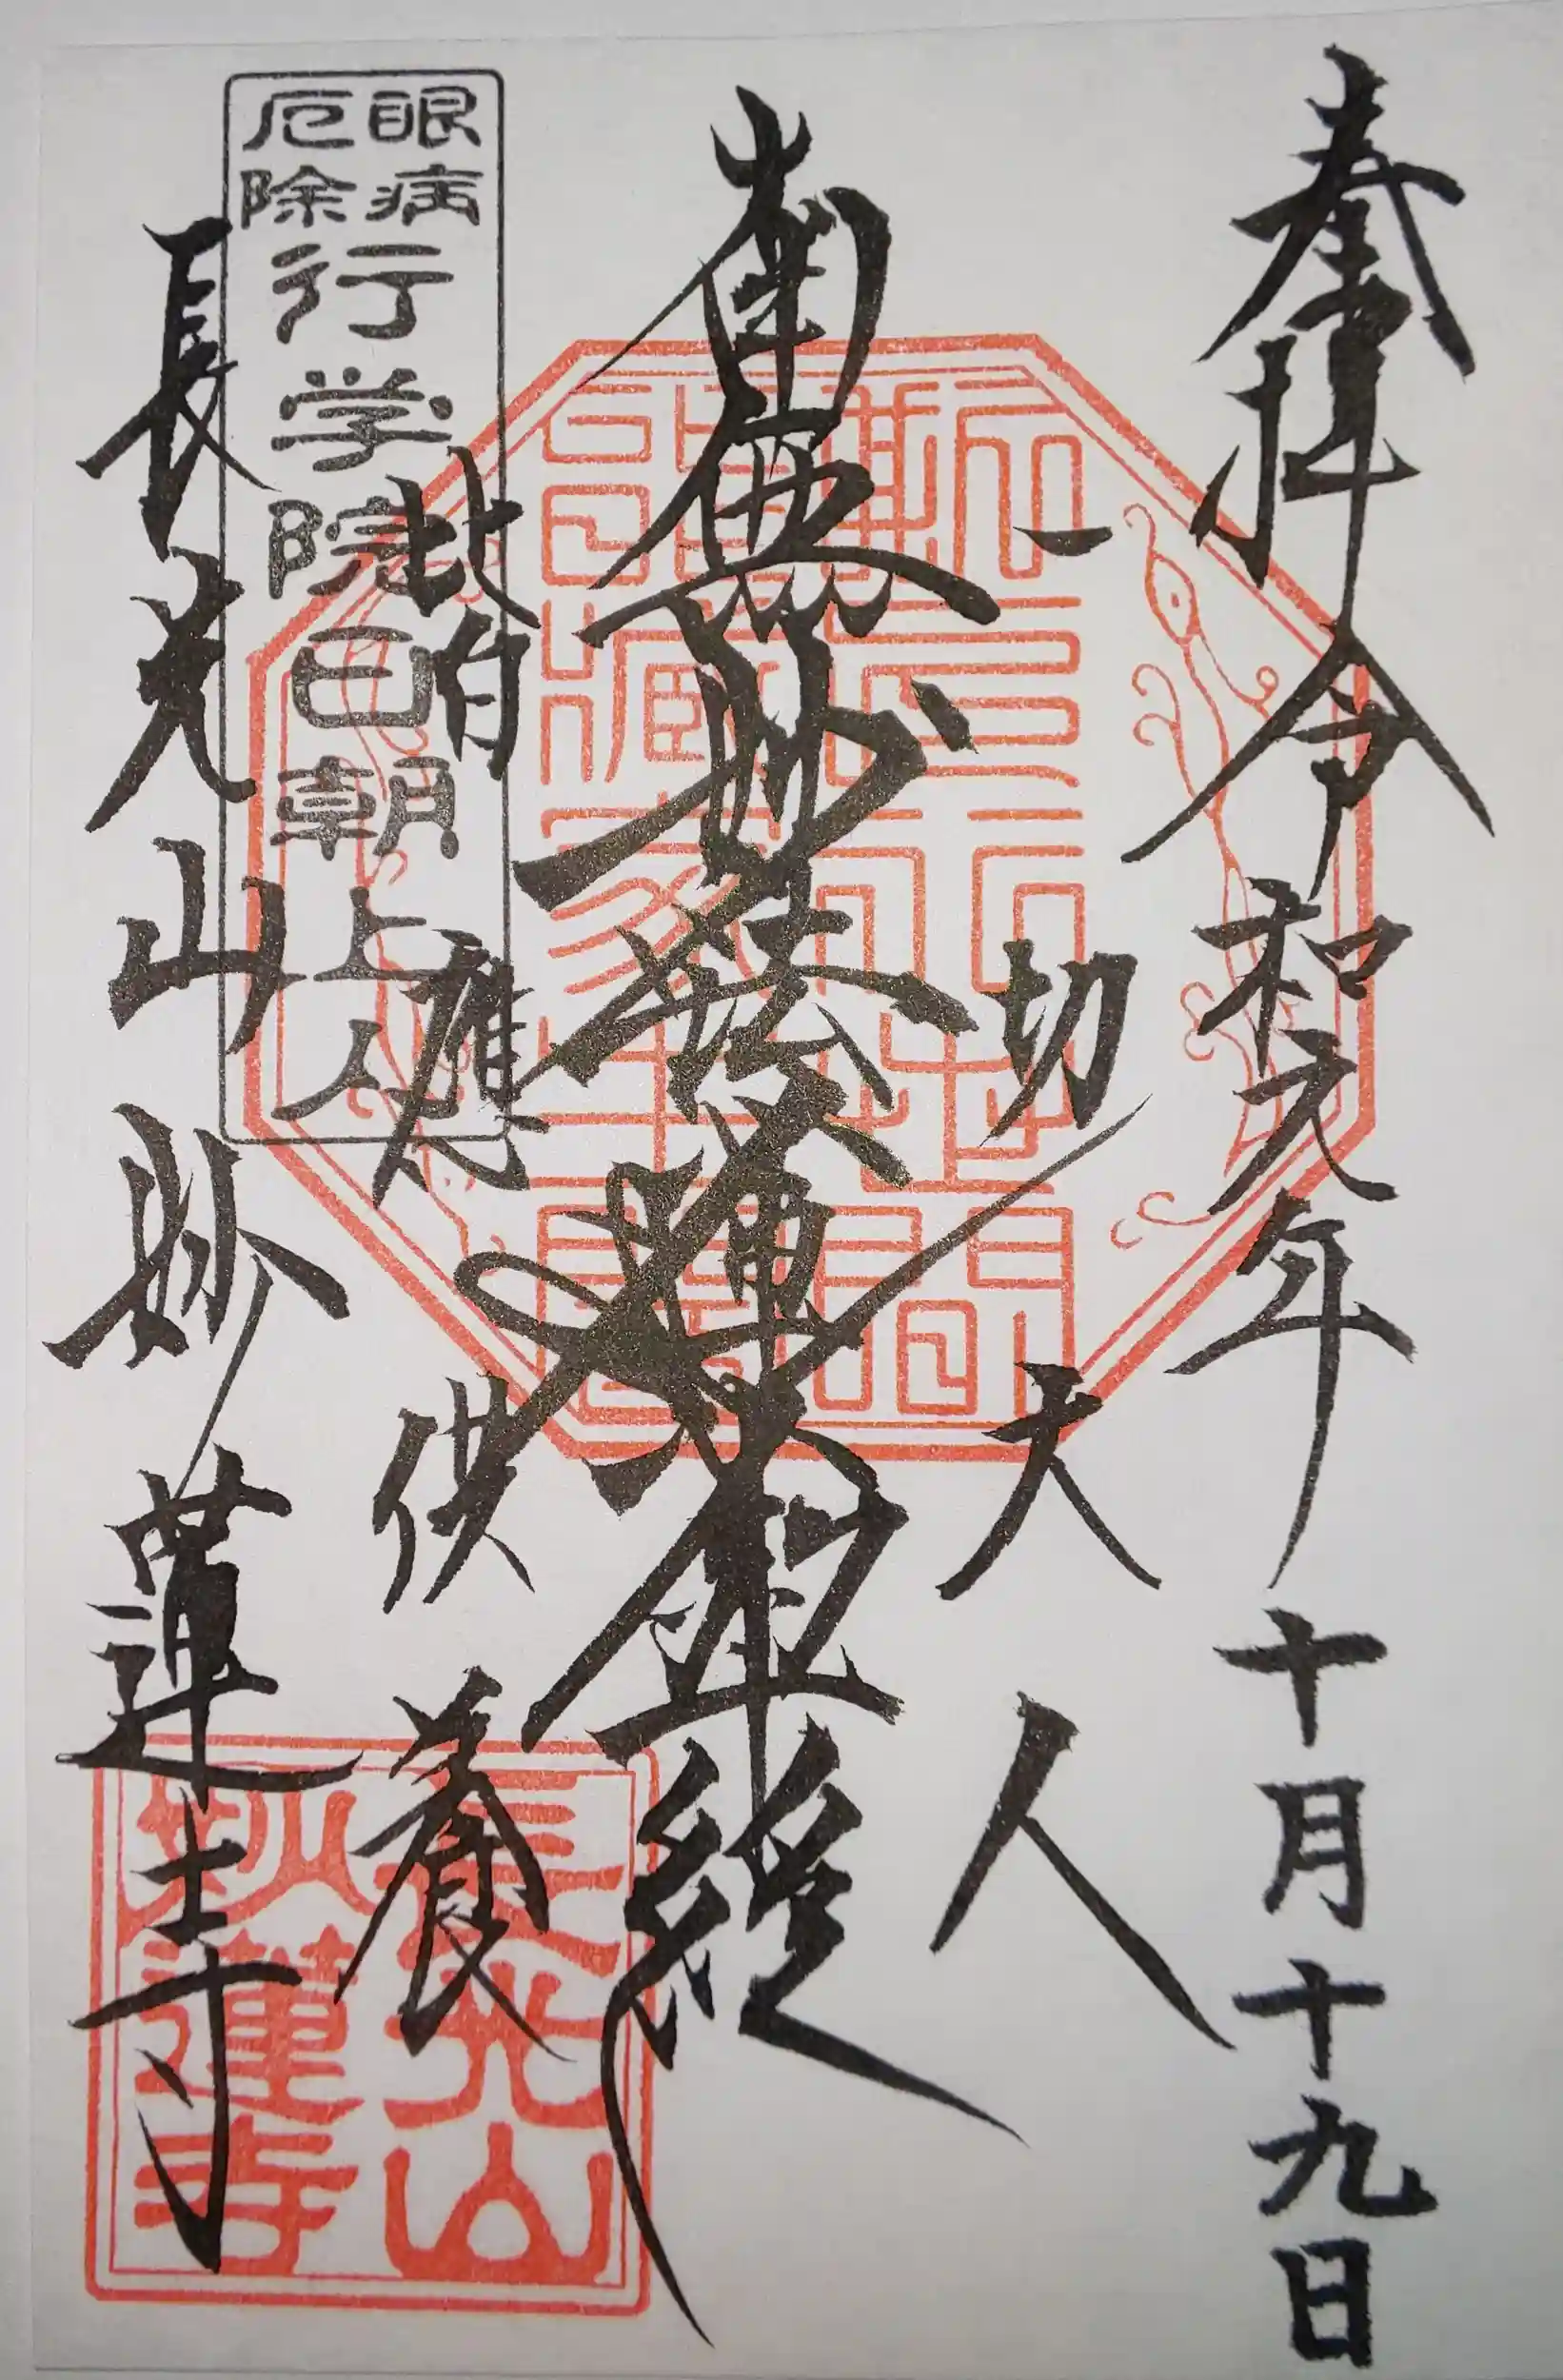 奉拝 令和元年十月十九日
一切天人
南無妙法蓮華經
皆應供養
眼病
厄除
行学院日朝上人
長光山妙蓮寺
長光山
妙蓮寺